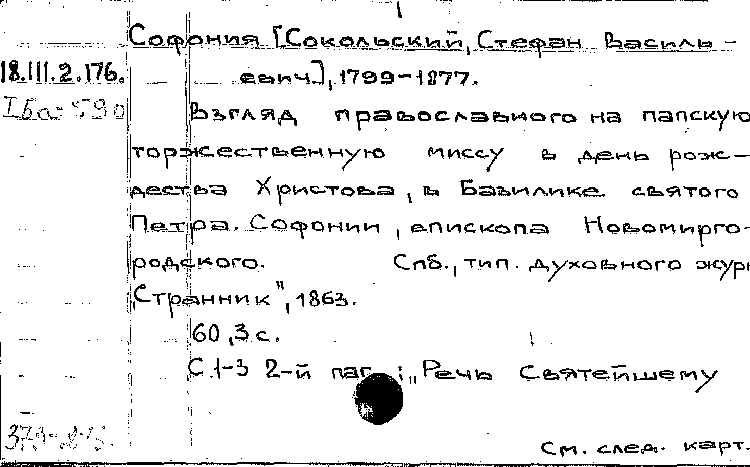 Софония [Сокольский, Стефан Василь-
18.III.2.176. евич], 1799-1877.
Взгляд православного на папскую
торжественную миссу в день рож-
дества Христова, в Базилике святого
Петра. Софонии, епископа Новомирго-
родского. Спб., тип. духовного журн
"Странник", 1863.
60, 3 с.
С. 1-3 2-й паг.: „Речь Святейшему
См. след. карт.